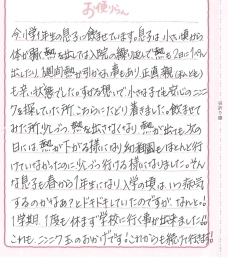 お便りらん
今小学1年生の息子に飲ませています。息子は小さい頃から
体が弱く熱を出しては入院の繰り返しで、熱も2日に1ぺん
出したり、1週間熱が引かない事もあり正直親（ほんとに）
も辛い状態でした。すがる想いで小さな子でも安心のニンニ
クを探していた所、こちらにたどり着きました。飲ませて
みた所、少しづつ熱を出さなくなり、熱が出ても次の
日には熱が下がる様になり幼稚園もほとんど行
けていなかったのに少しづつ行ける様になりました。そん
な息子も春から1年生になり入学の頃はいつ病気
するのかなあ？とドキドキしていたのですが、なんと！！
1学期、1度も休まず学校に行く事が出来ました!!
これも、ニンニク玉のおかげです！これからも続けて行きます！